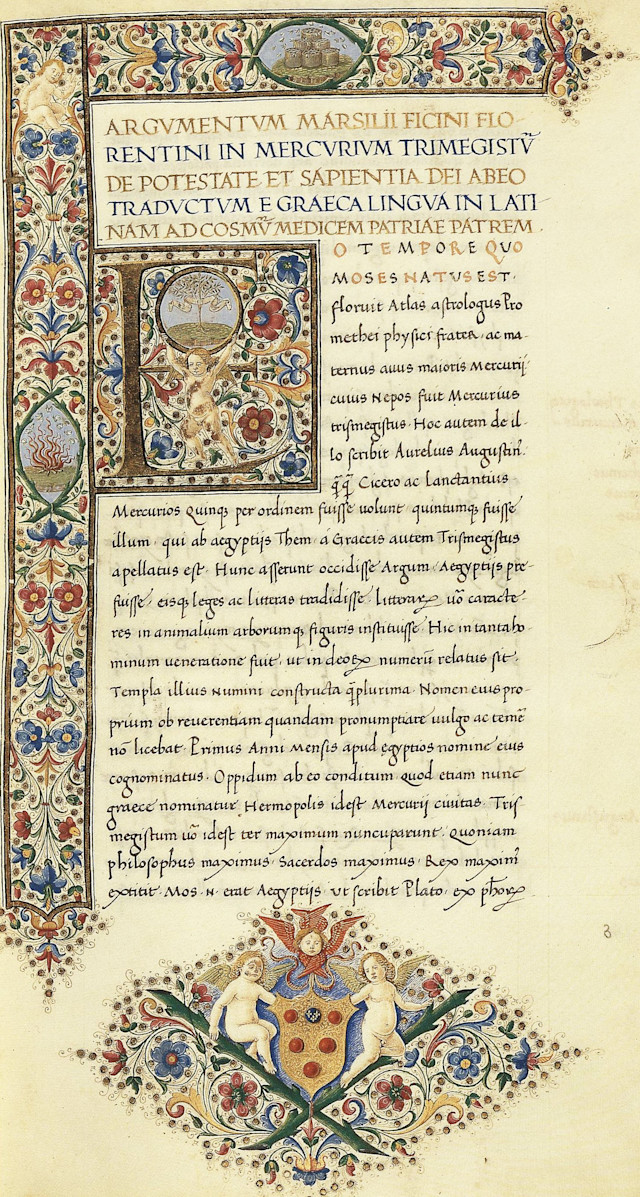 ARGVMENTVM MARSILII FICINI FLO-
RENTINI IN MERCVRIVM TRIMEGISTṼ
DE POTESTATE ET SAPIENTIA DEI ABEO
TRADVCTVM E GRAECA LINGVA IN LATI
NAM AD COSMṼ MEDICEM PATRIAE PATREM.
EO TEMPORE QVO
MOSES NATVS EST.
floruit Atlas astrologus Pro
methei physici frater, ac ma-
ternus auus maioris Mercurij
cuius Nepos fuit Mercurius
trismegistus. Hoc autem de il-
lo scribit Aurelius Augustin᷒.
q̃q̃ Cicero ac Lanctantius
Mercurios Quinq; per ordinem fuisse uolunt quintumq; fuisse
illum. qui ab aegyptijs Them. á Graecis autem Trismegistus
apellatus est. Hunc asserunt occidisse Argum. Aegyptijs pre-
fuisse. eisq; leges ac litteras tradidisse. litteraꝝ uo᷒ caracte-
res in animalium arborumq; figuris instituisse. Hic in tanta ho-
minum ueneratione fuit. ut in deoꝝ numerũ relatus sit.
Templa illius Numini constructa q̃plurima. Nomen eius pro-
prium ob reuerentiam quandam pronumptiare uulgo ac temẽ
nõ licebat. Primus Anni Mensis apud egyptios nomine eius
cognominatus. Oppidum ab eo conditum Quod etiam nunc
graece nominatur Hermopolis idest Mercurij ciuitas. Tris
megistum uõ idest ter maximum nuncuparunt. Quoniam
philosophus maximus. Sacerdos maximus. Rex maxim᷒
extitit. Mos .N. erat Aegyptijs. Vt scribit Plato. ex ph̃oꝝ